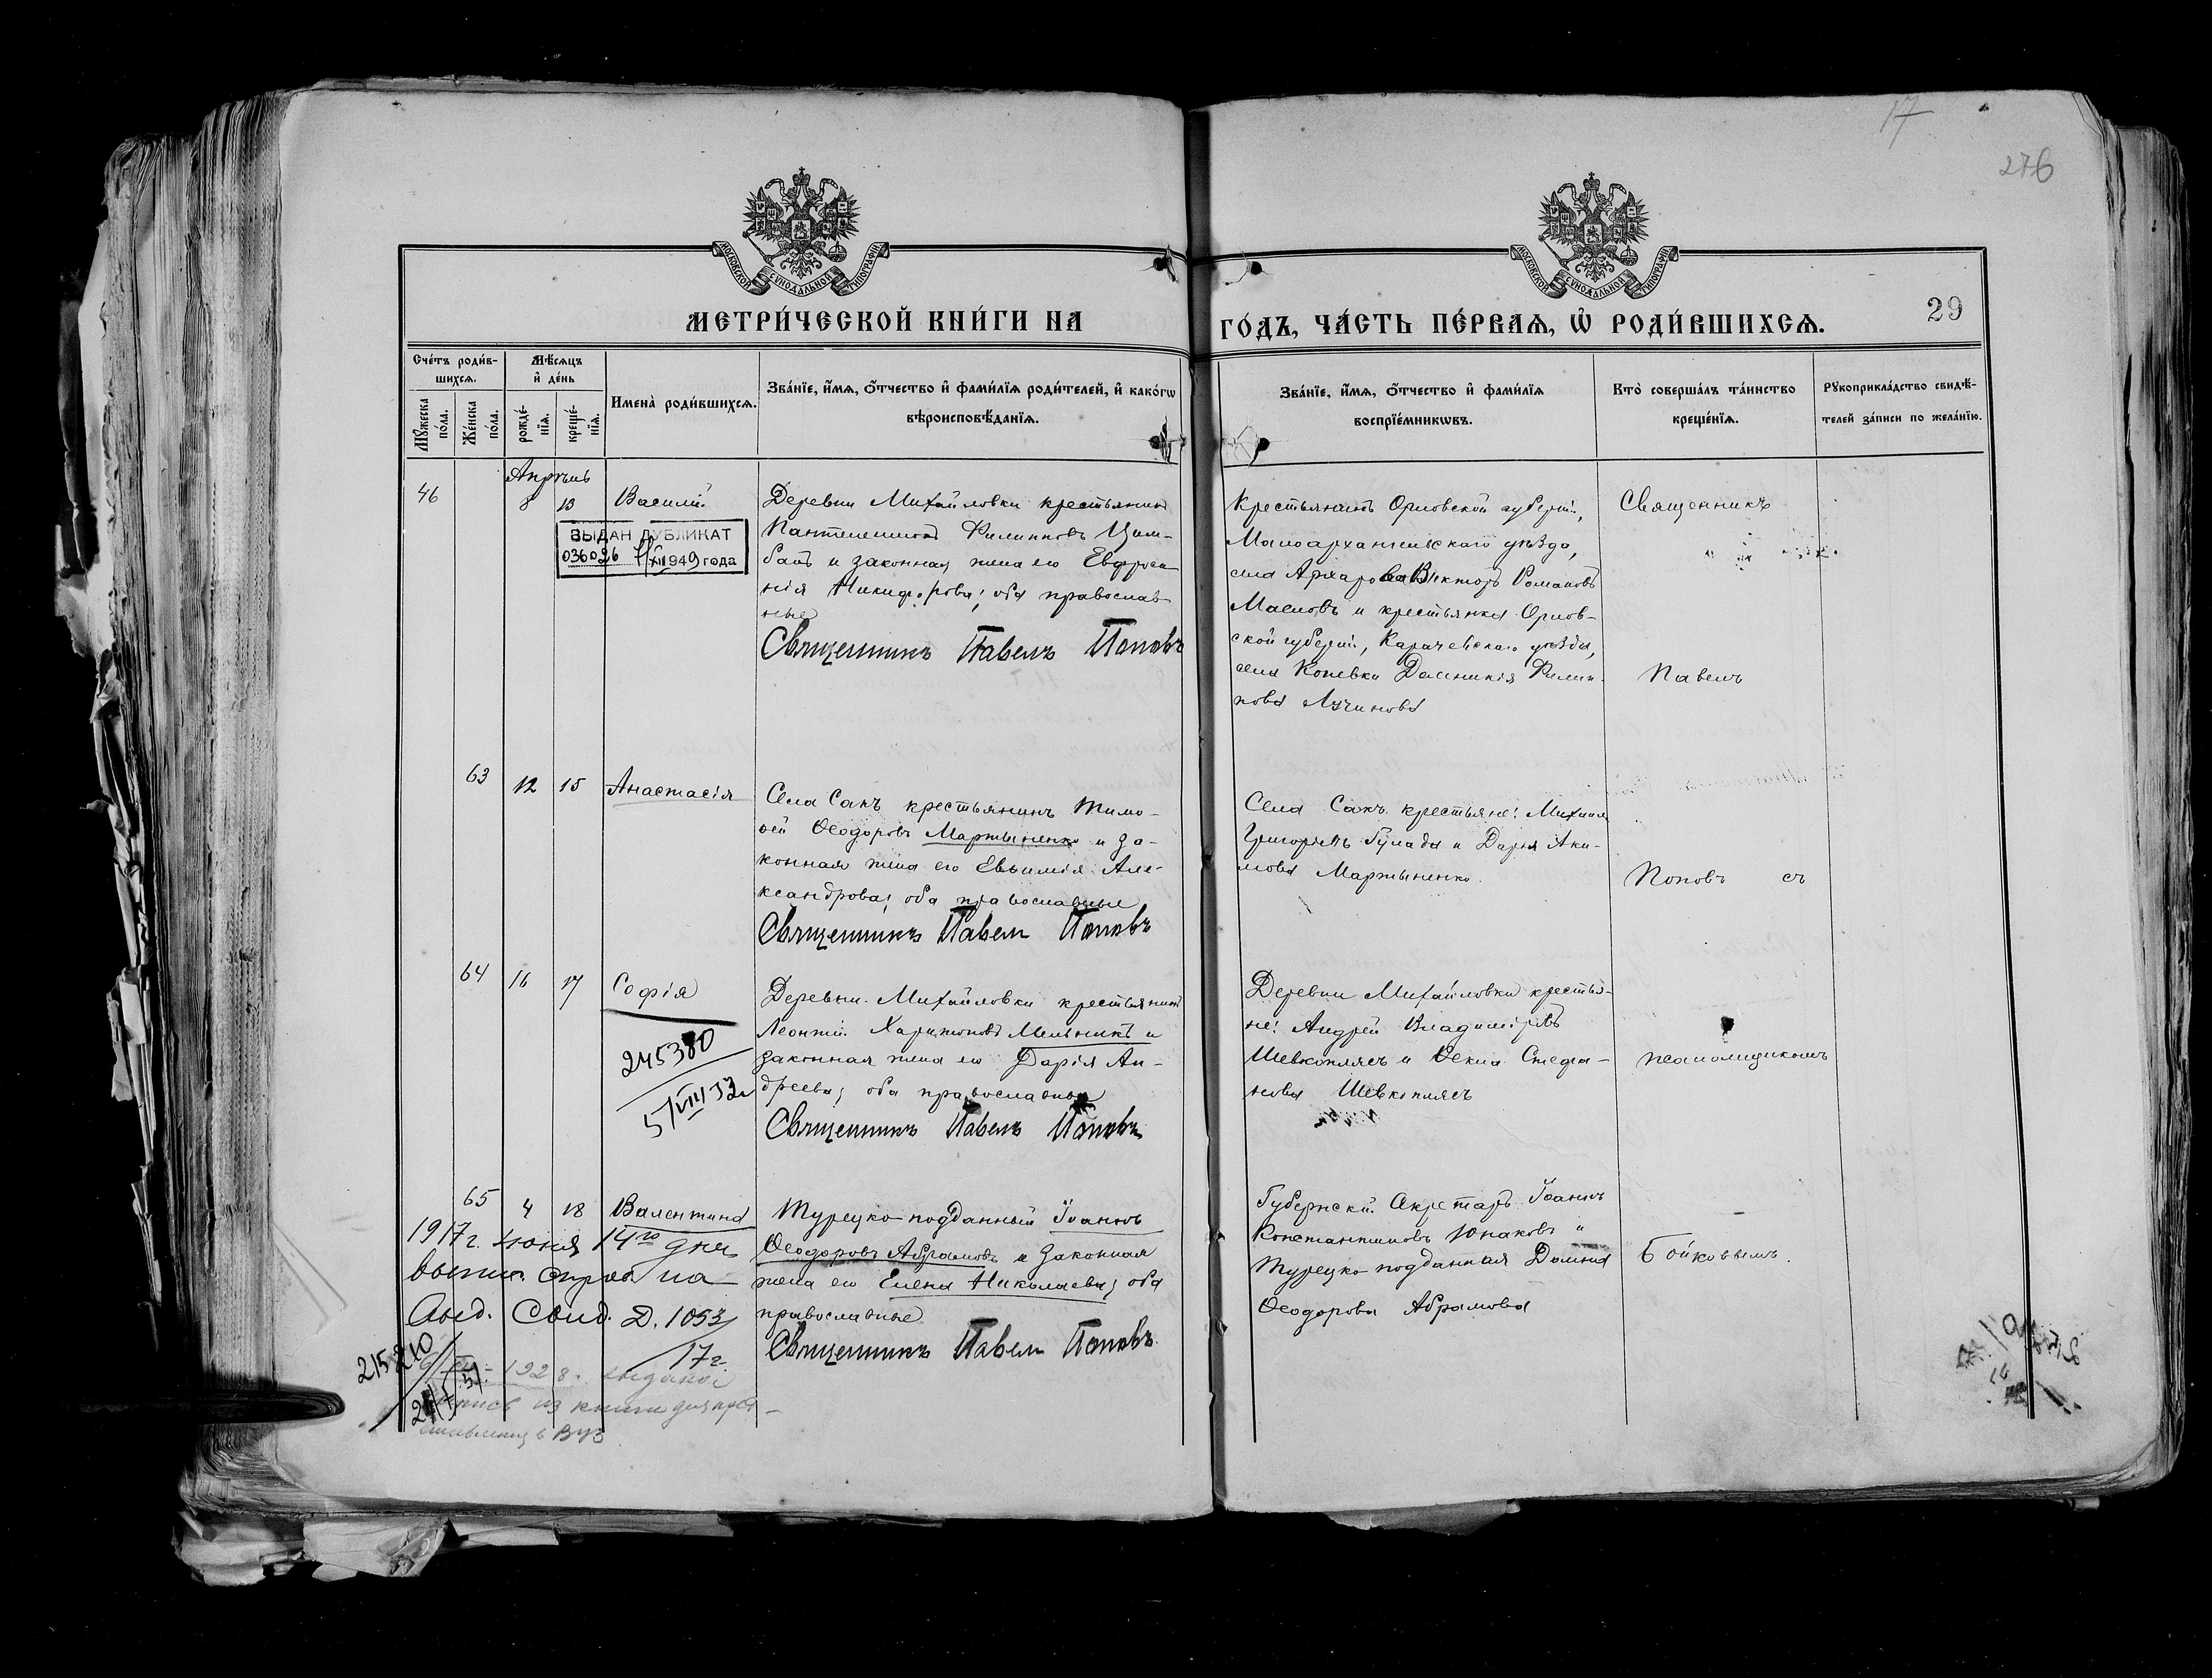 17
276
МОСКОВСКОЙ СѴНОДАЛЬНОЙ ТИПОГРАФІИ
МОСКОВСКОЙ СѴНОДАЛЬНОЙ ТИПОГРАФІИ
МЕТРИ́ЧЕСКОЙ КНИ́ГИ НА
ГО́ДЪ, ЧА́СТЬ ПЕ́РВАѦ, Ѡ҆ РОДИ́ВШИХСѦ.
29
Сче́тъ роди́в-
шихсѧ.
Мꙋ́жеска
по́ла.
Же́нска
по́ла.
Мѣ́сѧцъ
и҆ де́нь
рожде́-
нїѧ.
креще́-
нїѧ.
Имена̀ роди́вшихсѧ.
Зва́нїе, и҆́мѧ, ѻ҆́тчество и҆ фами́лїѧ роди́телей, и҆ како́гѡ
вѣроисповѣ́данїѧ.
Зва́нїе, и҆́мѧ, ѻ҆́тчество и҆ фами́лїѧ
воспрїе́мникѡвъ.
Кто̀ соверша́лъ та́инство
креще́нїѧ.
Рꙋкоприкла́дство свидѣ́-
телей за́писи по жела́нїю.
Апрѣль
46
8
13
Василій
Деревни Михайловки крестьянинъ
Пантелеимонъ Филипповъ Цим-
балъ и законная жена его Евфроси
нія Никифорова; оба православ
ные
Священникъ Павелъ Поповъ
ВЫДАН ДУБЛИКАТ
036026 11/XII 1949 года
Крестьянинъ Орловской губерніи,
Малоархангельскаго уѣзда,
села Архарова Викторъ Романовъ
Масловъ и крестьянка Орлов-
ской губерніи, Карачевскаго уѣзда,
села Коневки Домникія Филип
пова Лучинова
Священникъ
Павелъ
63
12
15
Анастасія
Села Сакъ крестьянинъ Тимо-
ѳей Ѳеодоровъ Мартыненко и за-
конная жена его Евѳимія Але-
ксандрова; оба православные
Священникъ Павелъ Поповъ
Села Сакъ крестьяне: Михаилъ
Григорьевъ Гулада и Дарія Аки-
мова Мартыненко.
Поповъ съ
64
16
17
Софія
245380
5/VIII 32
Деревни Михайловки крестьянинъ
Леонтій Харитоновъ Мельникъ и
законная жена его Дарія Ан-
дреева; оба православные
Священникъ Павелъ Поповъ
Деревни Михайловки крестья-
не: Андрей Владиміровъ
Шевкоплясъ и Ѳекла Стефа-
нова Шевкоплясъ
псаломщикомъ
65
4
18
Валентина
Турецко-подданный Іоаннъ
Ѳеодоровъ Абрамовъ и законная
жена его Елена Николаевна; оба
православные
Священникъ Павелъ Поповъ
Губернскій Секретарь Іоаннъ
Константиновъ Юнаковъ и
Турецко-подданная Домна
Ѳеодорова Абрамова
Бойковымъ.
1917г. Іюня 14го дня
на
Свид. Д. 1053
17г.
215210
1928г. выдана
из книги для пред-
ставления в Вуз